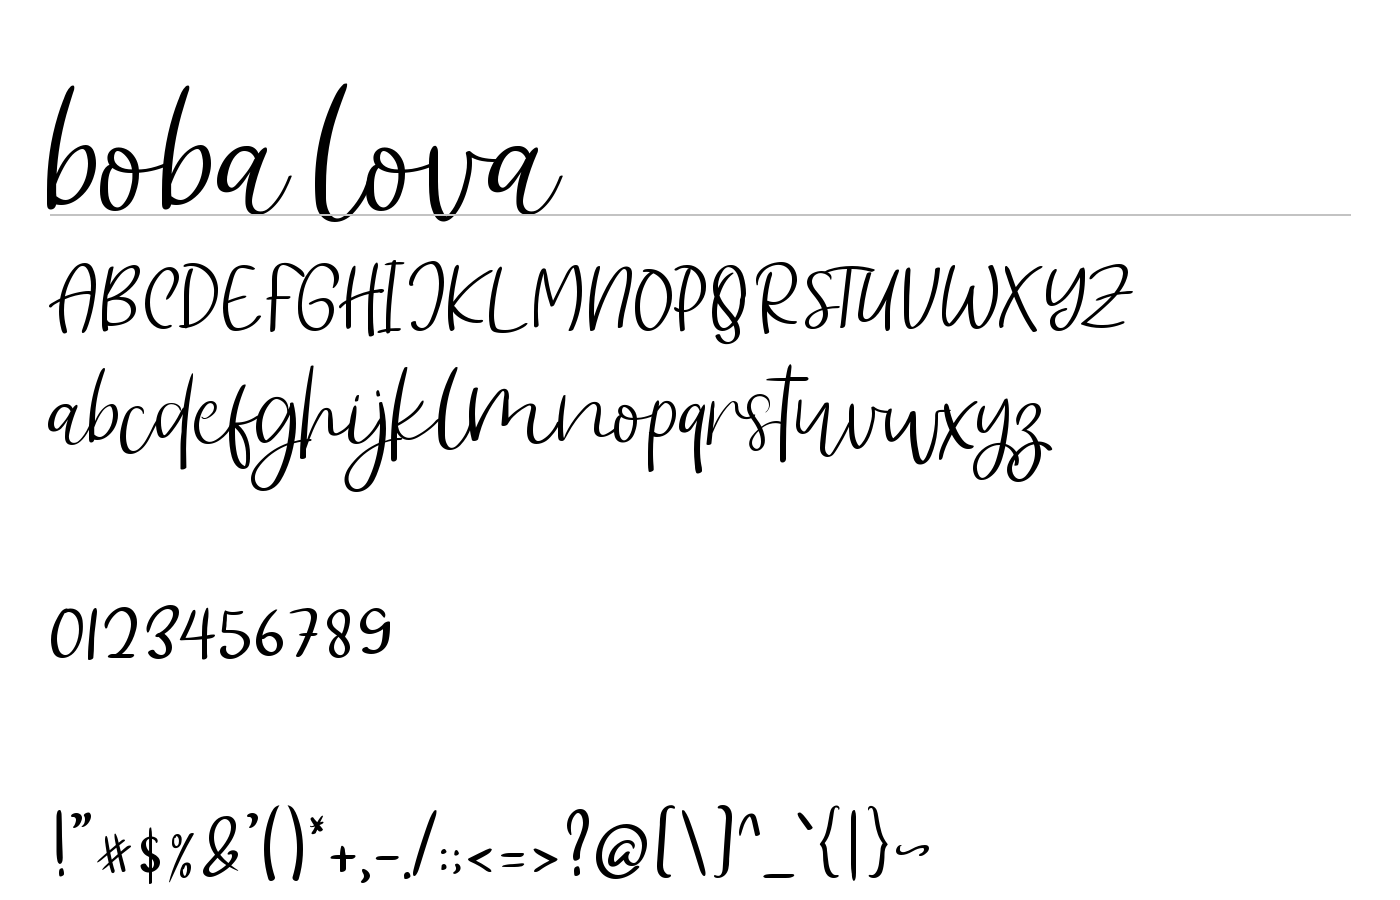 boba lova
ABCDEFGHIJKLMNOPQRSTUVWXYZ
abcdefghijklmnopqrstuvwxyz
0123456789
!"#$%&'()*+,-./:;<=>?@[\]^_`{|}~